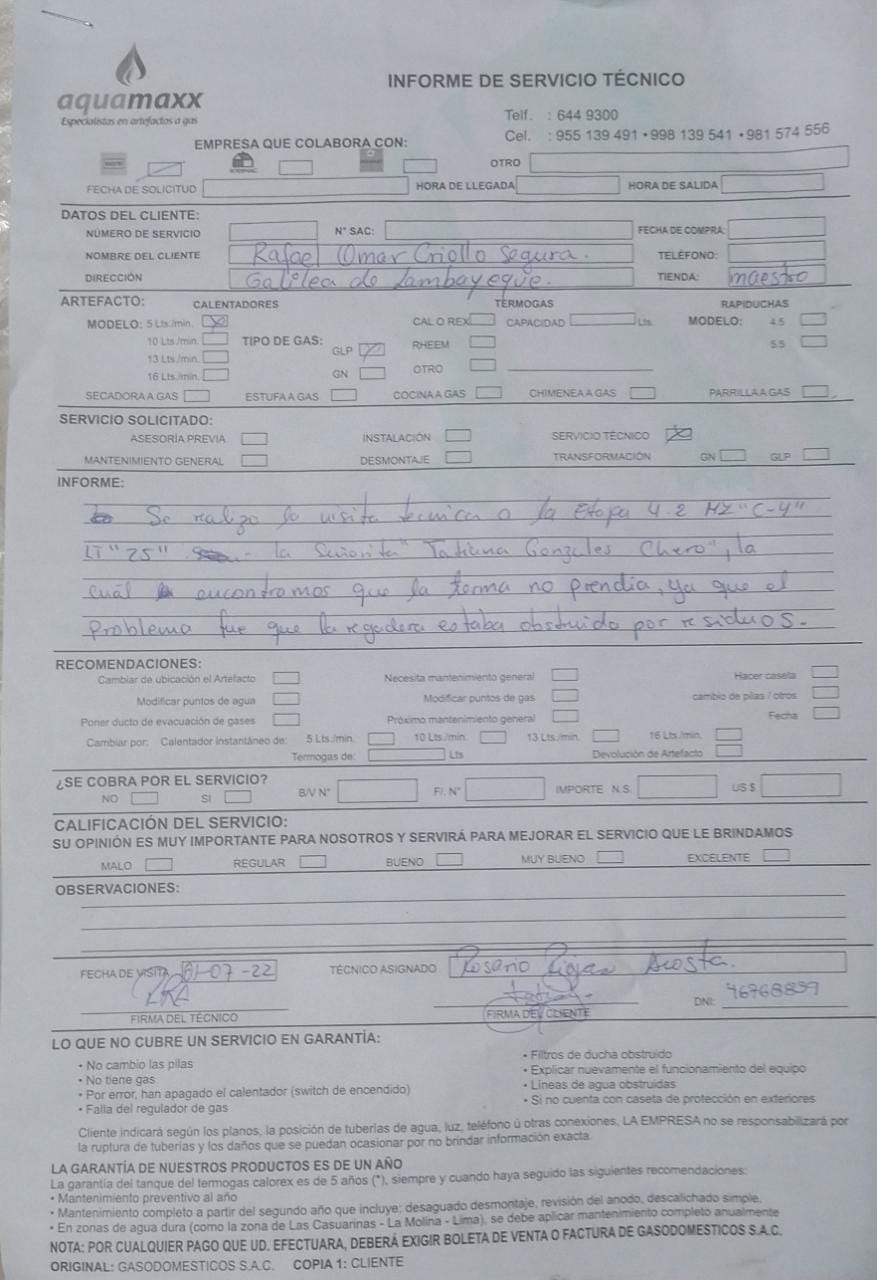 aquamaxx
Especialistas en artefactos a gas
INFORME DE SERVICIO TÉCNICO
Telf. : 644 9300
Cel. : 955 139 491 • 998 139 541 • 981 574 556
EMPRESA QUE COLABORA CON:
OTRO
FECHA DE SOLICITUD HORA DE LLEGADA HORA DE SALIDA
DATOS DEL CLIENTE:
NÚMERO DE SERVICIO N° SAC: FECHA DE COMPRA:
NOMBRE DEL CLIENTE Rafael Omar Criollo Segura. TELÉFONO:
DIRECCIÓN Galilea de Lambayeque. TIENDA: maestro
ARTEFACTO: CALENTADORES TERMOGAS RAPIDUCHAS
MODELO: 5 Lts./min. CALOREX CAPACIDAD Lts. MODELO: 4.5
10 Lts./min. TIPO DE GAS: GLP RHEEM 5.5
13 Lts./min.
16 Lts./min. GN OTRO
SECADORA A GAS ESTUFA A GAS COCINA A GAS CHIMENEA A GAS PARRILLA A GAS
SERVICIO SOLICITADO:
ASESORÍA PREVIA INSTALACIÓN SERVICIO TÉCNICO
MANTENIMIENTO GENERAL DESMONTAJE TRANSFORMACIÓN GN GLP
INFORME:
Se realizo la visita tecnica a la Etapa 4.2 MZ "C-4"
LT "25" la Señorita "Tatiana Gonzales Chero", la
cuál encontramos que la terma no prendia, ya que el
problema fue que la regadera estaba obstruido por residuos.
RECOMENDACIONES:
Cambiar de ubicación el Artefacto Necesita mantenimiento general Hacer caseta
Modificar puntos de agua Modificar puntos de gas cambio de pilas / otros
Poner ducto de evacuación de gases Próximo mantenimiento general Fecha
Cambiar por: Calentador instantáneo de: 5 Lts./min. 10 Lts./min. 13 Lts./min. 16 Lts./min.
Termogas de: Lts Devolución de Artefacto
¿SE COBRA POR EL SERVICIO?
NO SI B/V N° F/. N° IMPORTE N.S. US $
CALIFICACIÓN DEL SERVICIO:
SU OPINIÓN ES MUY IMPORTANTE PARA NOSOTROS Y SERVIRÁ PARA MEJORAR EL SERVICIO QUE LE BRINDAMOS
MALO REGULAR BUENO MUY BUENO EXCELENTE
OBSERVACIONES:
FECHA DE VISITA 01-07-22 TÉCNICO ASIGNADO Rosario Acosta.
DNI: 46768859
FIRMA DEL TÉCNICO FIRMA DEL CLIENTE
LO QUE NO CUBRE UN SERVICIO EN GARANTÍA:
• No cambio las pilas
• No tiene gas
• Por error, han apagado el calentador (switch de encendido)
• Falla del regulador de gas
• Filtros de ducha obstruido
• Explicar nuevamente el funcionamiento del equipo
• Líneas de agua obstruidas
• Si no cuenta con caseta de protección en exteriores
Cliente indicará según los planos, la posición de tuberías de agua, luz, teléfono ú otras conexiones, LA EMPRESA no se responsabilizará por
la ruptura de tuberías y los daños que se puedan ocasionar por no brindar información exacta.
LA GARANTÍA DE NUESTROS PRODUCTOS ES DE UN AÑO
La garantía del tanque del termogas calorex es de 5 años (*), siempre y cuando haya seguido las siguientes recomendaciones:
• Mantenimiento preventivo al año
• Mantenimiento completo a partir del segundo año que incluye: desaguado desmontaje, revisión del anodo, descalichado simple.
• En zonas de agua dura (como la zona de Las Casuarinas - La Molina - Lima), se debe aplicar mantenimiento completo anualmente
NOTA: POR CUALQUIER PAGO QUE UD. EFECTUARA, DEBERÁ EXIGIR BOLETA DE VENTA O FACTURA DE GASODOMESTICOS S.A.C.
ORIGINAL: GASODOMESTICOS S.A.C. COPIA 1: CLIENTE